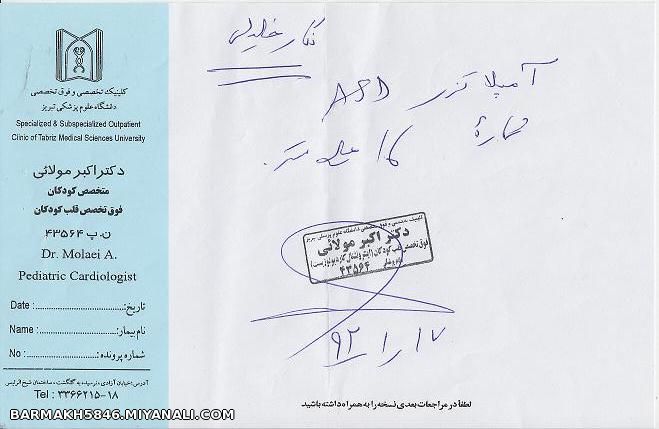 کلینیک تخصصی و فوق تخصصی
دانشگاه علوم پزشکی تبریز
Specialized & Subspecialized Outpatient
Clinic of Tabriz Medical Sciences University
دکتر اکبر مولائی
متخصص کودکان
فوق تخصص قلب کودکان
ن.پ ۴۳۵۶۴
Dr. Molaei A.
Pediatric Cardiologist
تاریخ: Date :
نام بیمار: Name :
شماره پرونده: No :
آدرس: خیابان آزادی، نرسیده به گلگشت، ساختمان شیخ الرئیس
Tel : ۳۳۶۶۲۱۵-۱۸
نگار خلیلی
آمپلاتزر ASD
شماره ۱۵ میلی متر
کلینیک تخصصی و فوق تخصصی دانشگاه علوم پزشکی تبریز
دکتر اکبر مولائی
فوق تخصص قلب کودکان (اینترونشنال کاردیولوژیست)
۴۳۵۶۴
۹۲/۱/۱۷
لطفا در مراجعات بعدی نسخه را به همراه داشته باشید
BARMAKH5846.MIYANALI.COM